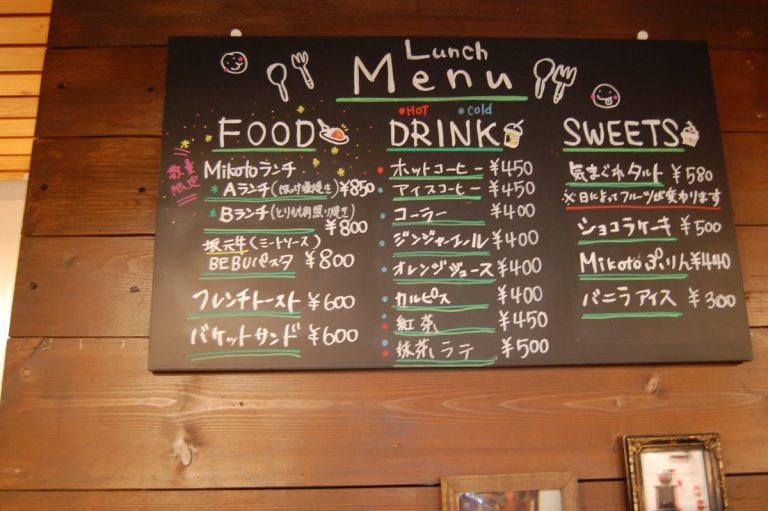 Lunch
Menu
FOOD
数量
限定
Mikotoランチ
*Aランチ(ほっけ塩焼き)¥850
*Bランチ(とりもも肉照り焼き)
¥800
坂元牛(ミートソース)
BEBUパスタ ¥800
フレンチトースト ¥600
バケットサンド ¥600
HOT cold
DRINK
ホットコーヒー ¥450
アイスコーヒー ¥450
コーラー ¥400
ジンジャーエール ¥400
オレンジジュース ¥400
カルピス ¥400
紅茶 ¥450
抹茶ラテ ¥500
SWEETS
気まぐれタルト ¥580
※日によってフルーツが変わります
ショコラケーキ ¥500
Mikotoぷりん ¥440
バニラアイス ¥300